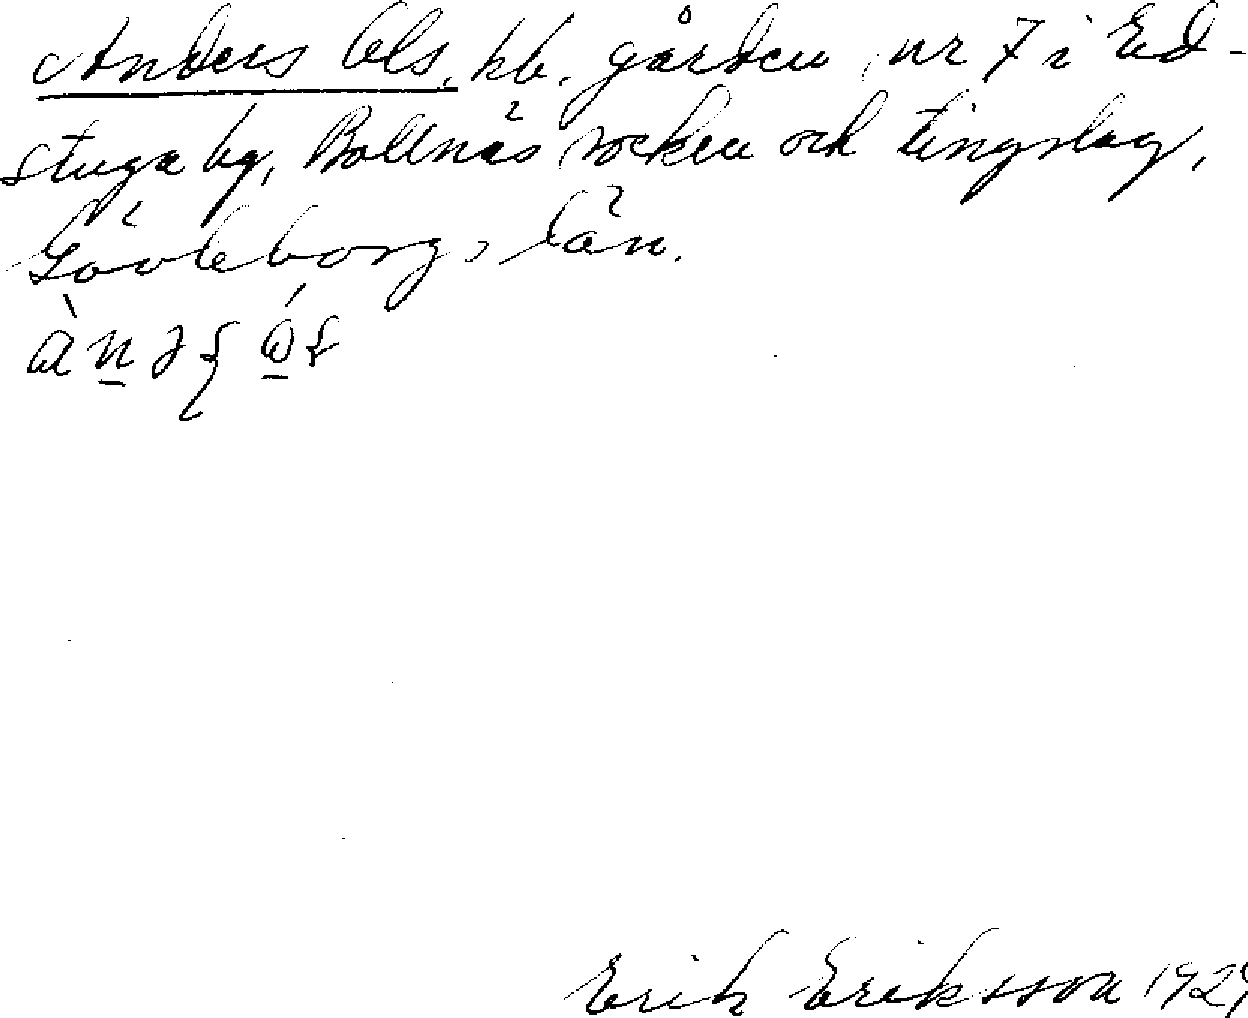 Anders Ols, hb. gården nr 7 i Ed-
stuga by, Bollnäs socken och tingslag,
Gävleborgs län.
Erik Eriksson 1929